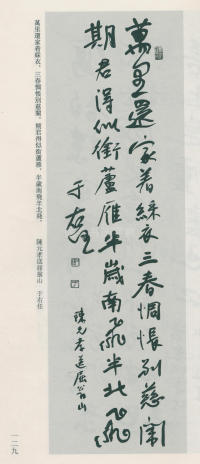 萬里還家着綵衣三春惆悵別慈闈
期君得似銜蘆雁半歲南飛半北飛
陳元孝送屈翁山
于右任
萬里還家着綵衣，三春惆悵別慈闈。期君得似銜蘆雁，半歲南飛半北飛。　陳元孝送屈翁山　于右任
一二九